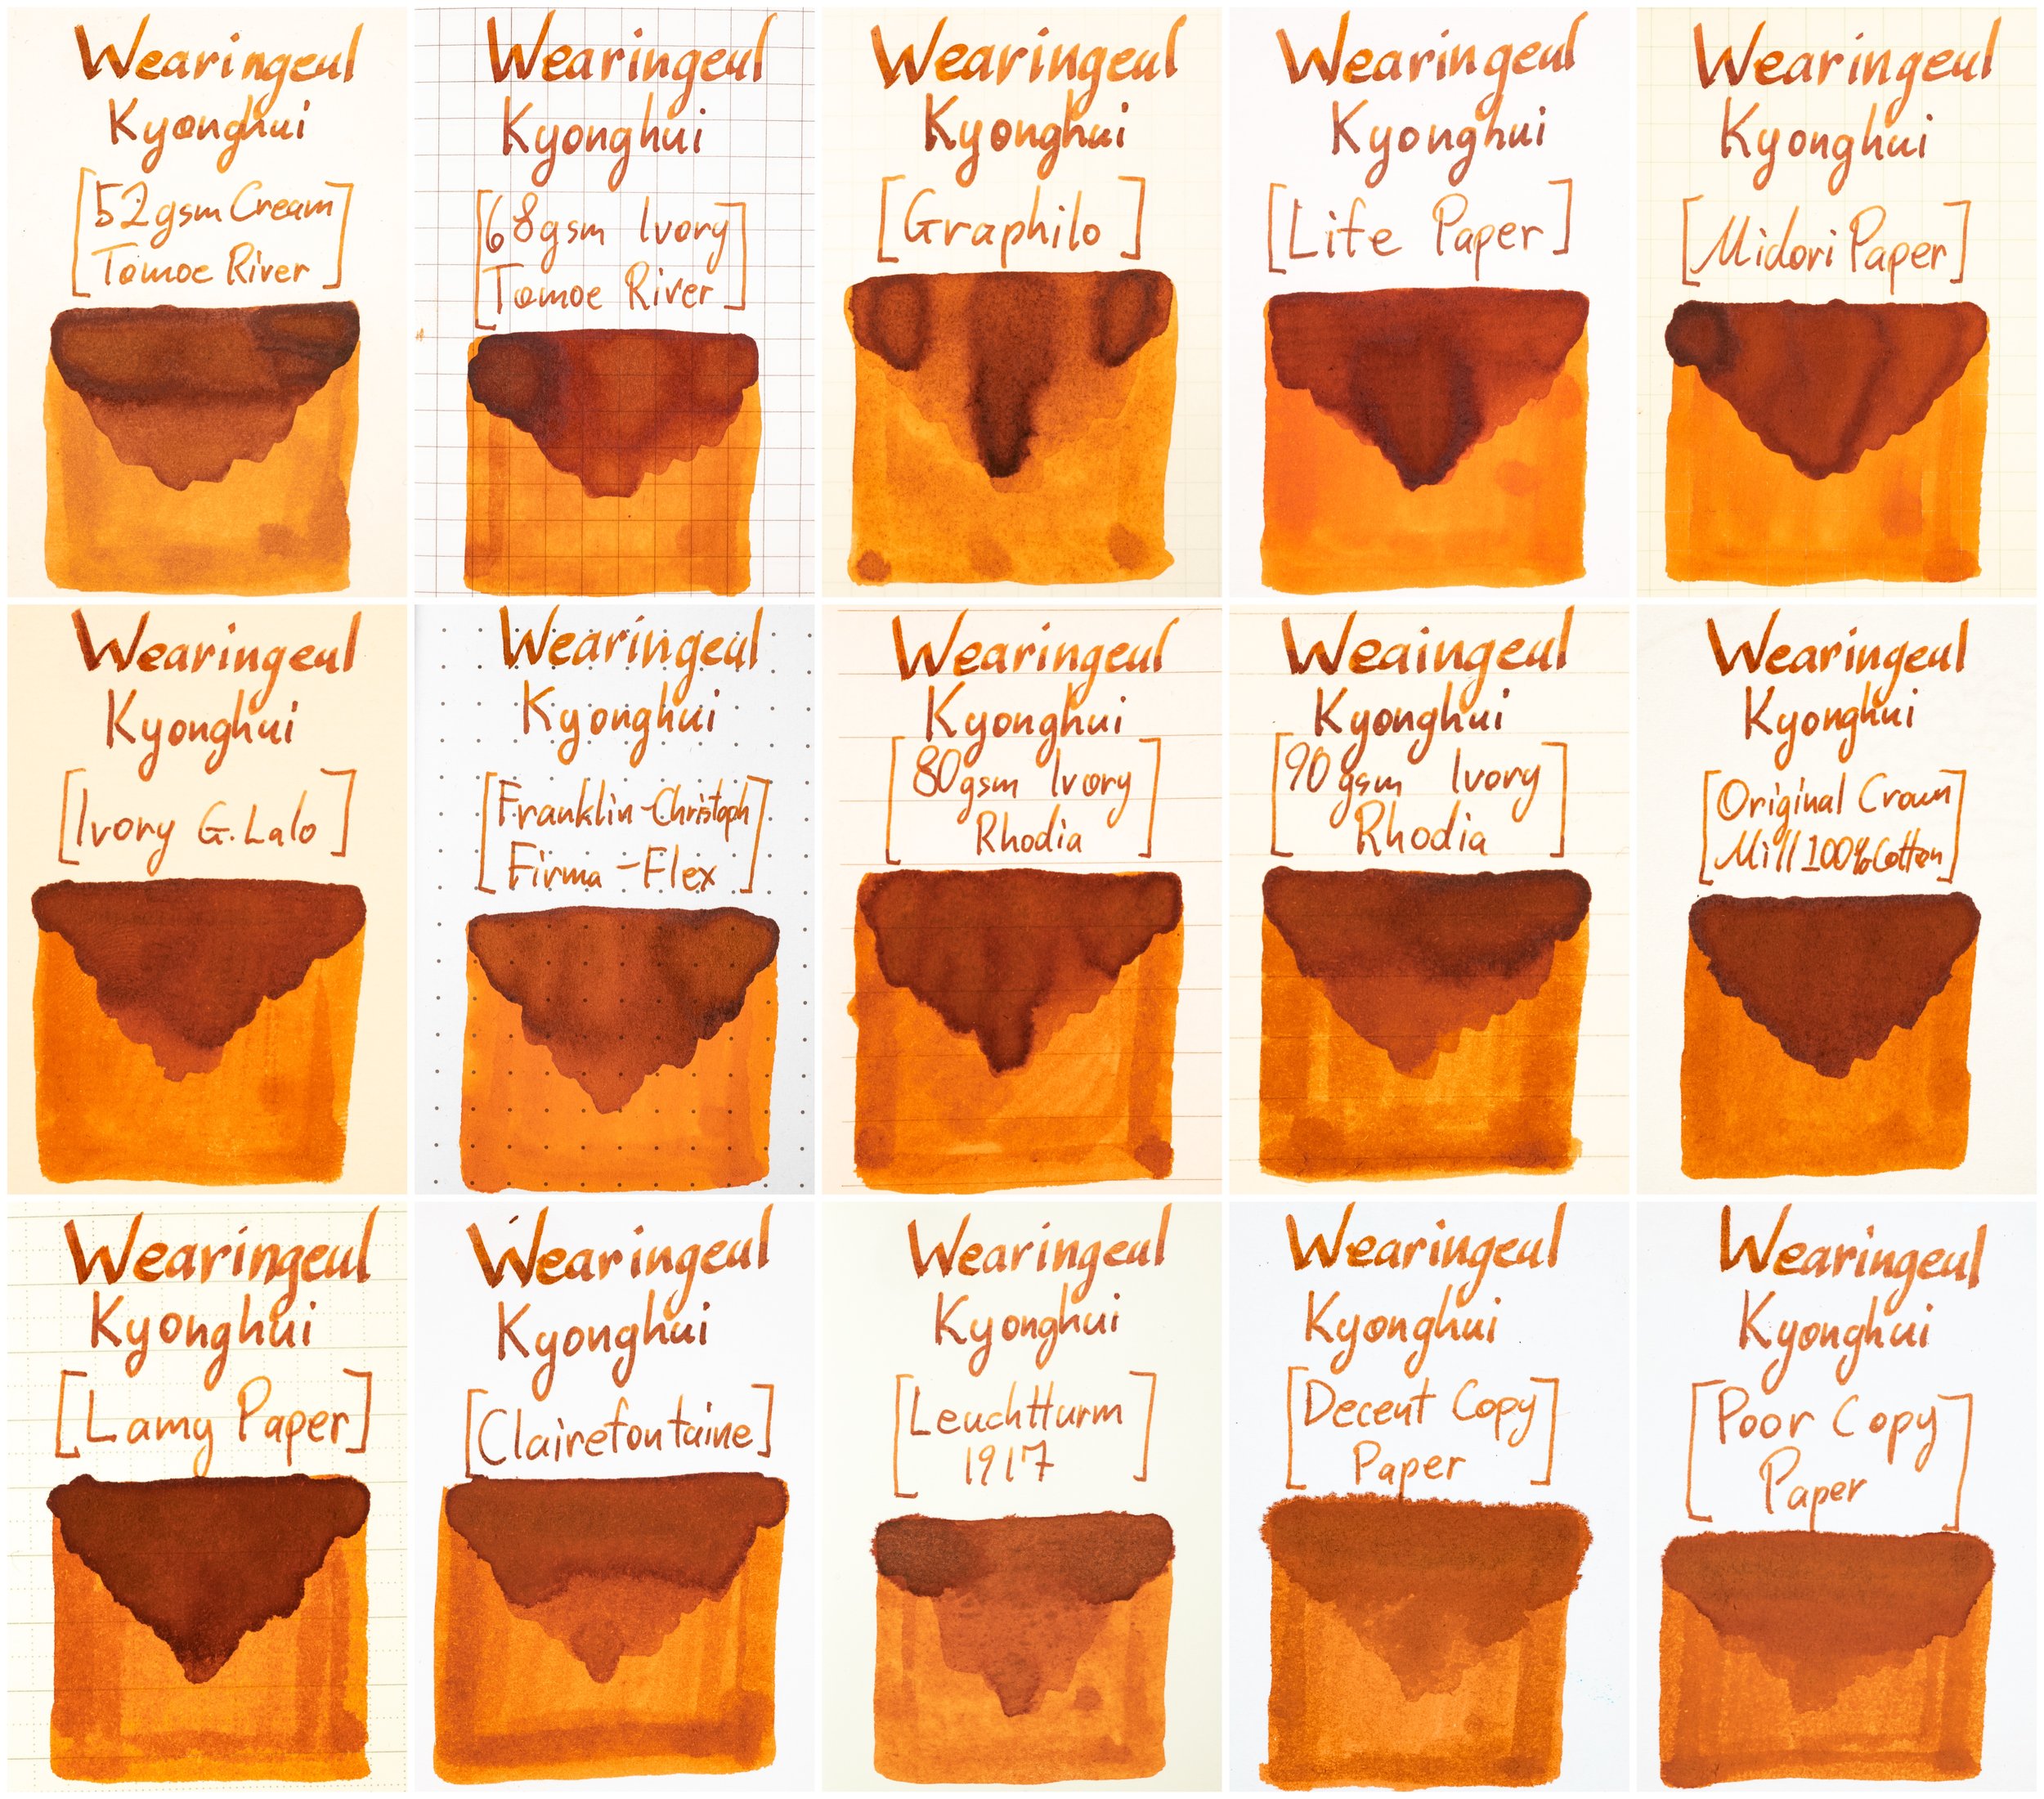 Wearingeul
Kyonghui
[52gsm Cream
Tomoe River]
Wearingeul
Kyonghui
[68gsm Ivory
Tomoe River]
Wearingeul
Kyonghui
[Graphilo]
Wearingeul
Kyonghui
[Life Paper]
Wearingeul
Kyonghui
[Midori Paper]
Wearingeul
Kyonghui
[Ivory G.Lalo]
Wearingeul
Kyonghui
[Franklin-Christoph
Firma-Flex]
Wearingeul
Kyonghui
[80gsm Ivory
Rhodia]
Weaingeul
Kyonghui
[90gsm Ivory
Rhodia]
Wearingeul
Kyonghui
[Original Crown
Mill 100% Cotton]
Wearingeul
Kyonghui
[Lamy Paper]
Wearingeul
Kyonghui
[Clairefontaine]
Wearingeul
Kyonghui
[Leuchtturm
1917]
Wearingeul
Kyonghui
[Decent Copy
Paper]
Wearingeul
Kyonghui
[Poor Copy
Paper]